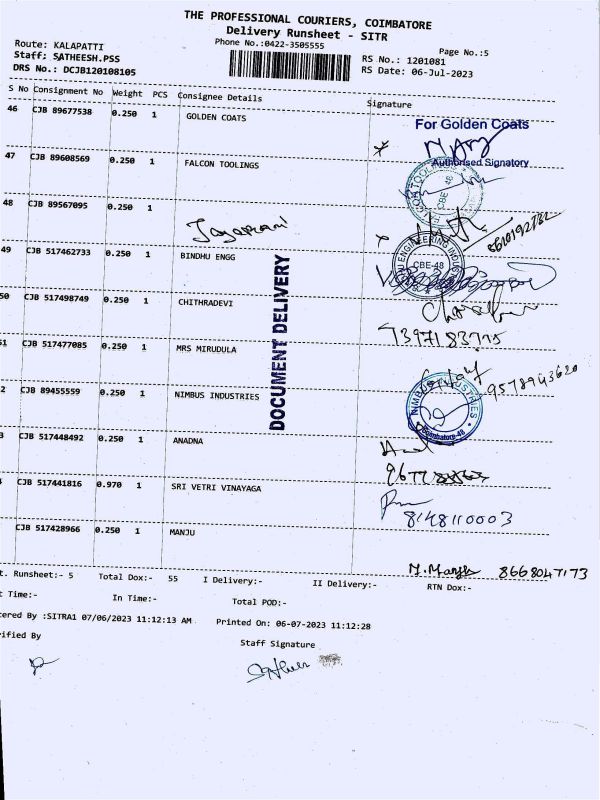 THE PROFESSIONAL COURIERS, COIMBATORE
Delivery Runsheet - SITR
Phone No.:0422-3505555
Page No.:5
Route: KALAPATTI
Staff: SATHEESH.PSS
DRS No.: DCJB120108105
RS No.: 1201081
RS Date: 06-Jul-2023
S No Consignment No Weight PCS Consignee Details Signature
46 CJB 89677538 0.250 1 GOLDEN COATS
For Golden Coats
Authorised Signatory
47 CJB 89608569 0.250 1 FALCON TOOLINGS
48 CJB 89567095 0.250 1
49 CJB 517462733 0.250 1 BINDHU ENGG
CBE-48
50 CJB 517498749 0.250 1 CHITHRADEVI
DOCUMENT DELIVERY
51 CJB 517477085 0.250 1 MRS MIRUDULA
9578943620
2 CJB 89455559 0.250 1 NIMBUS INDUSTRIES
NIMBUS INDUSTRIES
Coimbatore-48
3 CJB 517448492 0.250 1 ANADNA
CJB 517441816 0.970 1 SRI VETRI VINAYAGA
8148110003
CJB 517428966 0.250 1 MANJU
8668047173
t. Runsheet:- 5 Total Dox:- 55 I Delivery:- II Delivery:- RTN Dox:-
t Time:- In Time:- Total POD:-
tered By :SITRA1 07/06/2023 11:12:13 AM Printed On: 06-07-2023 11:12:28
rified By Staff Signature